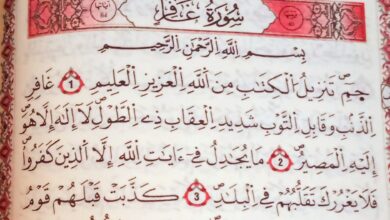 سُورَةُ غَافِرٍ
بِسْمِ اللَّهِ الرَّحْمَٰنِ الرَّحِيمِ
حمٓ تَنزِيلُ الْكِتَابِ مِنَ اللَّهِ الْعَزِيزِ الْعَلِيمِ 1 غَافِرِ
الذَّنۢبِ وَقَابِلِ التَّوْبِ شَدِيدِ الْعِقَابِ ذِے الطَّوْلِ لَآ إِلَٰهَ إِلَّا هُوَ
إِلَيْهِ الْمَصِيرُ 2 مَا يُجَادِلُ فِےٓ ءَايَٰتِ اللَّهِ إِلَّا الَّذِينَ كَفَرُواْ
فَلَا يَغْرُرْكَ تَقَلُّبُهُمْ فِے الْبِلَٰدِ 3 كَذَّبَتْ قَبْلَهُمْ قَوْمُ